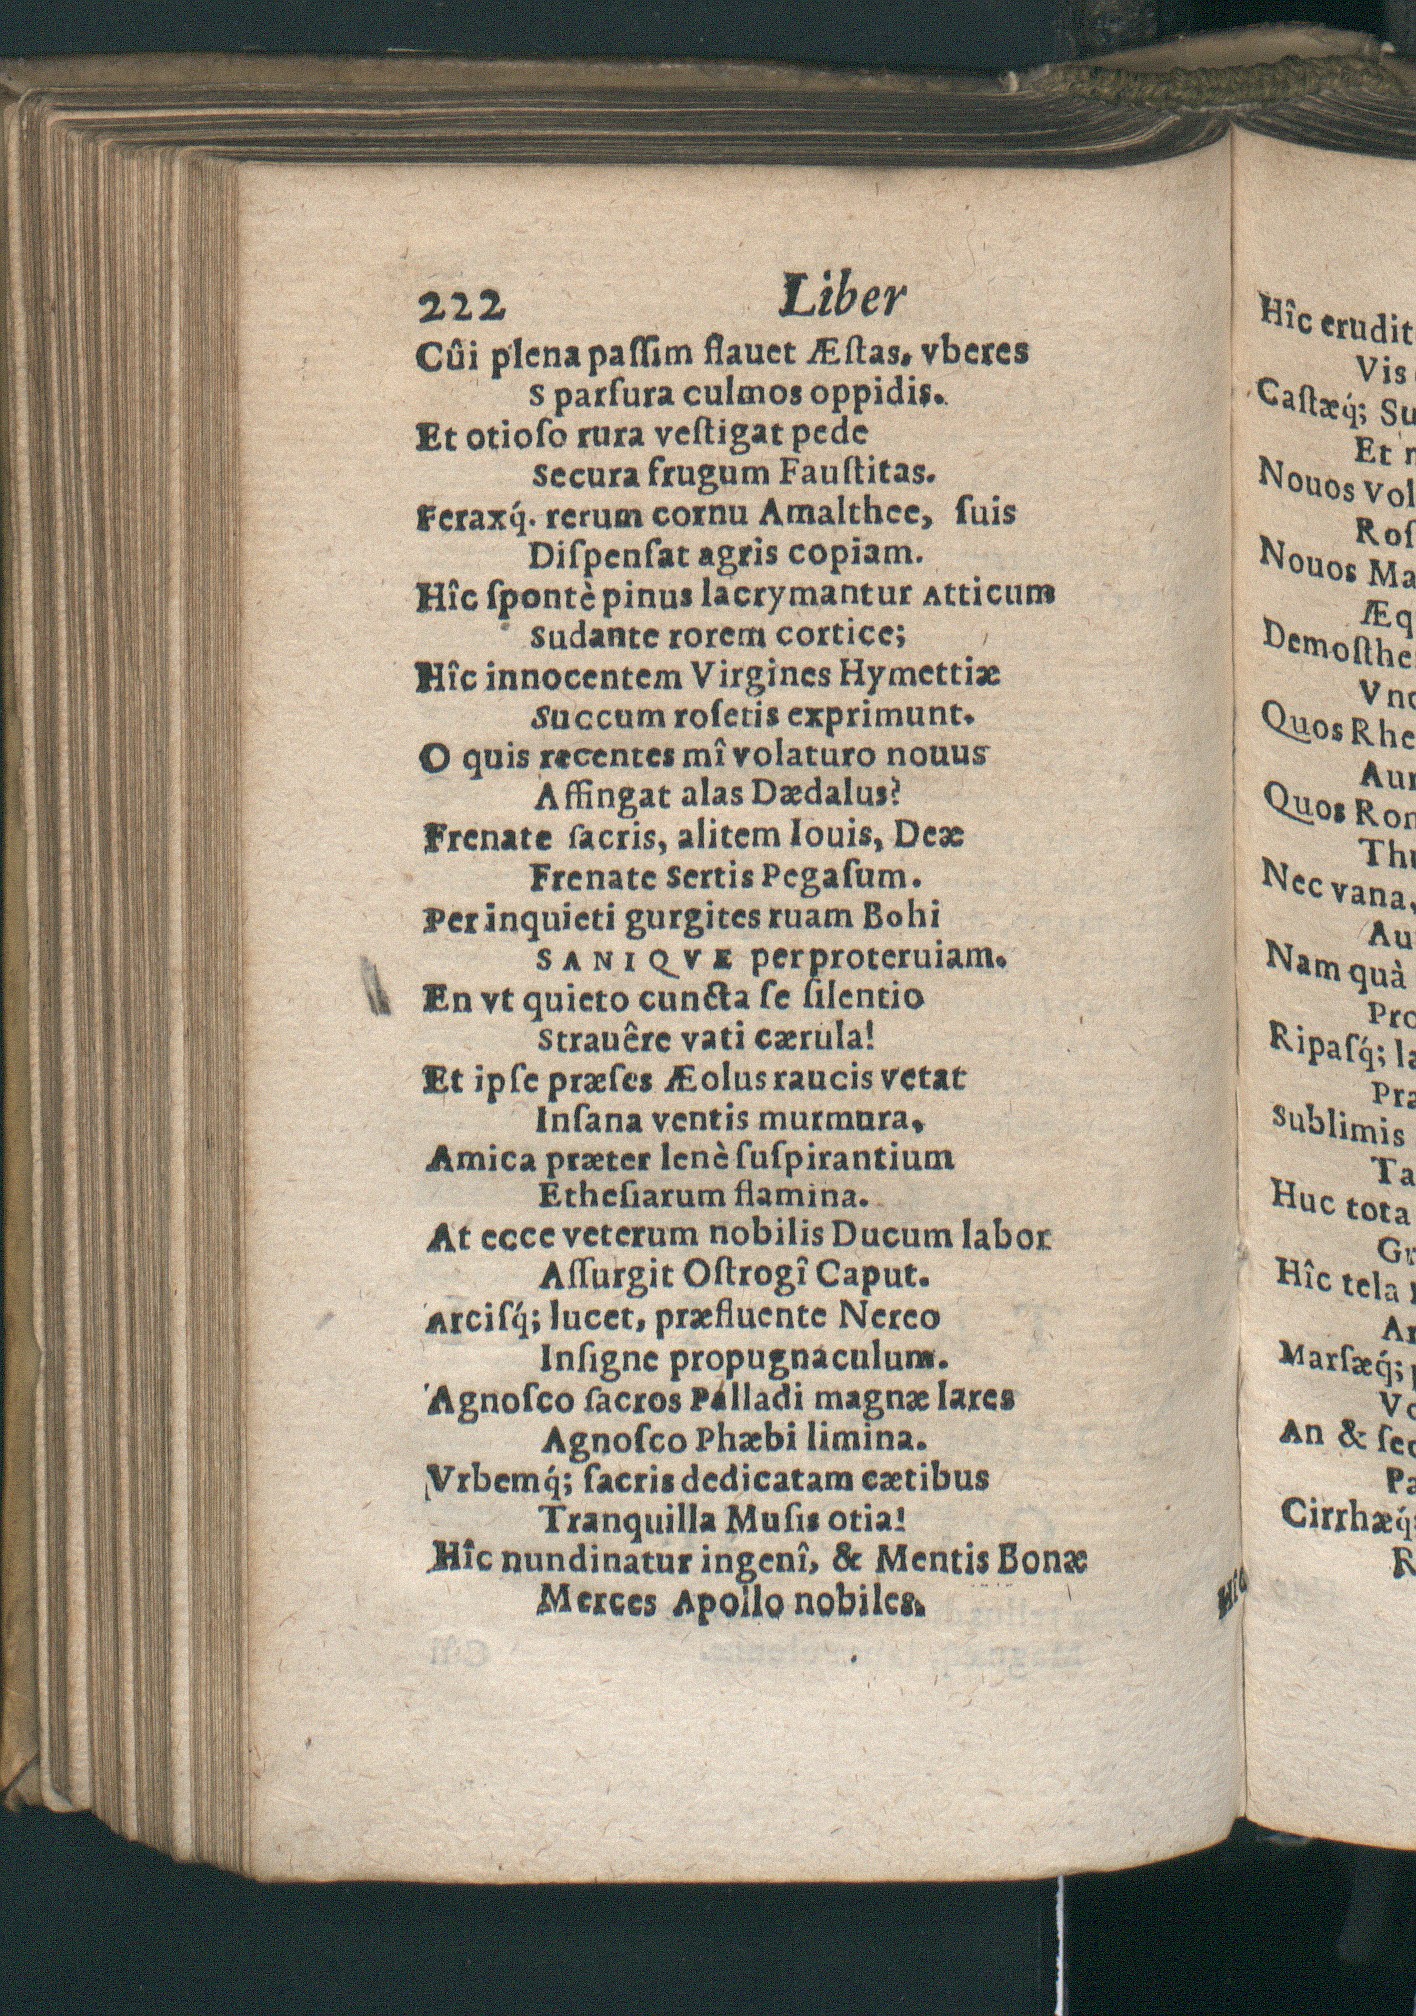 222 Liber
Cûi plena paſſim flauet Æſtas, vberes
Sparſura culmos oppidis.
Et otioſo rura veſtigat pede
Secura frugum Fauſtitas.
Feraxq́. rerum cornu Amalthee, ſuis
Diſpenſat agris copiam.
Hîc ſpontè pinus lacrymantur Atticum
Sudante rorem cortice;
Hîc innocentem Virgines Hymettiæ
Succum roſetis exprimunt.
O quis recentes mî volaturo nouus
Affingat alas Dædalus?
Frenate ſacris, alitem Iouis, Deæ
Frenate Sertis Pegaſum.
Per inquieti gurgites ruam Bohi
SANIQVE per proteruiam.
En vt quieto cuncta ſe ſilentio
Strauêre vati cærula!
Et ipſe præſes Æolus raucis vetat
Inſana ventis murmura,
Amica præter lenè ſuſpirantium
Etheſiarum flamina.
At ecce veterum nobilis Ducum labor
Aſſurgit Oſtrogî Caput.
Arciſq́; lucet, præfluente Nereo
Inſigne propugnaculum.
Agnoſco ſacros Palladi magnæ lares
Agnoſco Phæbi limina.
Vrbemq́; ſacris dedicatam cætibus
Tranquilla Muſis otia!
Hîc nundinatur ingenî, & Mentis Bonæ
Merces Apollo nobiles.
Hîc erudit
Vis
Caſtæq́; Su
Et
Nouos Vol
Roſ
Nouos Ma
Æq
Demoſthe
Vno
Quos Rhe
Aur
Quos Rom
Thu
Nec vana,
Au
Nam quà
Pro
Ripaſq́; la
Pra
Sublimis
Ta
Huc tota
Gr
Hîc tela
Ar
Marſæq́;
Vo
An & ſec
Pa
Cirrhæq́;
R